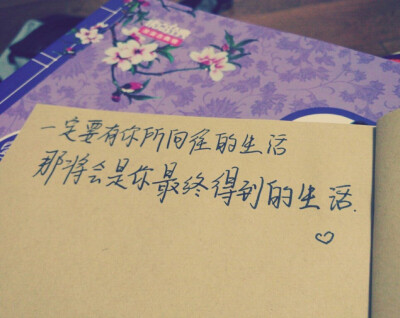 一定要有你所向往的生活
那将会是你最终得到的生活.